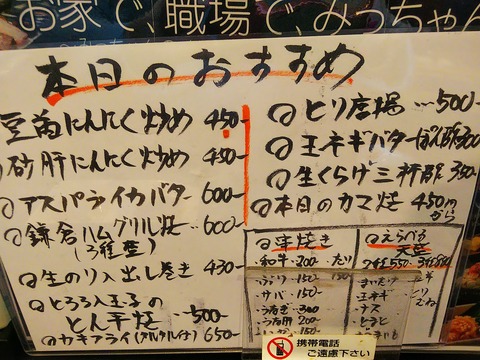 お家で、職場で、みっちゃん
本日のおすすめ
豆苗にんにく炒め 450-
砂肝にんにく炒め 450-
アスパライカバター 600-
鎌倉ハムグリル焼 600-
(3種盛)
生のり入出し巻き 430-
とろろ入玉子の
とん平焼 500-
カキフライ(タルタル付) 650-
とり唐揚 500-
玉ネギバターぽん酢 300
生くらげ三杯酢 350-
本日のカマ焼 450円から
串焼き
和牛 200-
ぶり 150-
サバ 150-
うずら
えらべる
天盛
まいたけ
玉ネギ
ナス
とり
むね
携帯電話
ご遠慮下さい